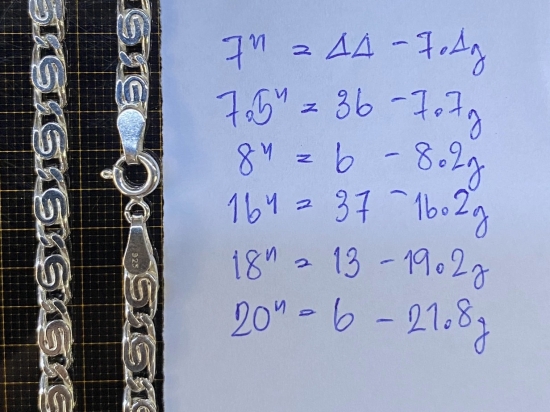 7" = 44 - 7.4g
7.5" = 36 - 7.7g
8" = 6 - 8.2g
16" = 37 - 16.2g
18" = 13 - 19.2g
20" = 6 - 21.8g
925